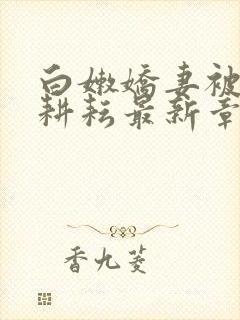 白嫩嬌妻被
耕耘最新章
香九菱